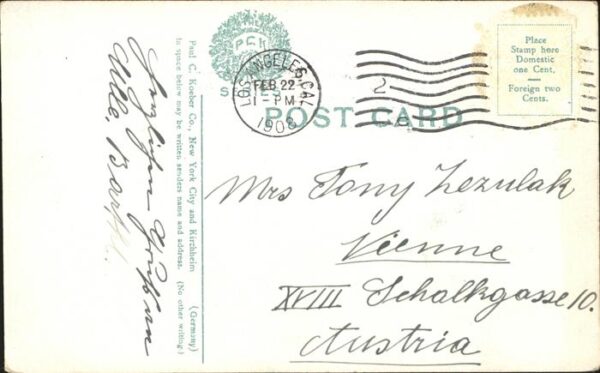 PCK
SERIES
LOS ANGELES, CAL
FEB 22
1-PM
1908
2
Place
Stamp here
Domestic
one Cent.
Foreign two
Cents.
POST CARD
Paul C. Koeber Co., New York City and Kirchheim (Germany)
In space below may be written senders name and address. (No other writing)
Mrs Tony Zezulak
Vienne
XVIII Schalkgasse 10.
Austria